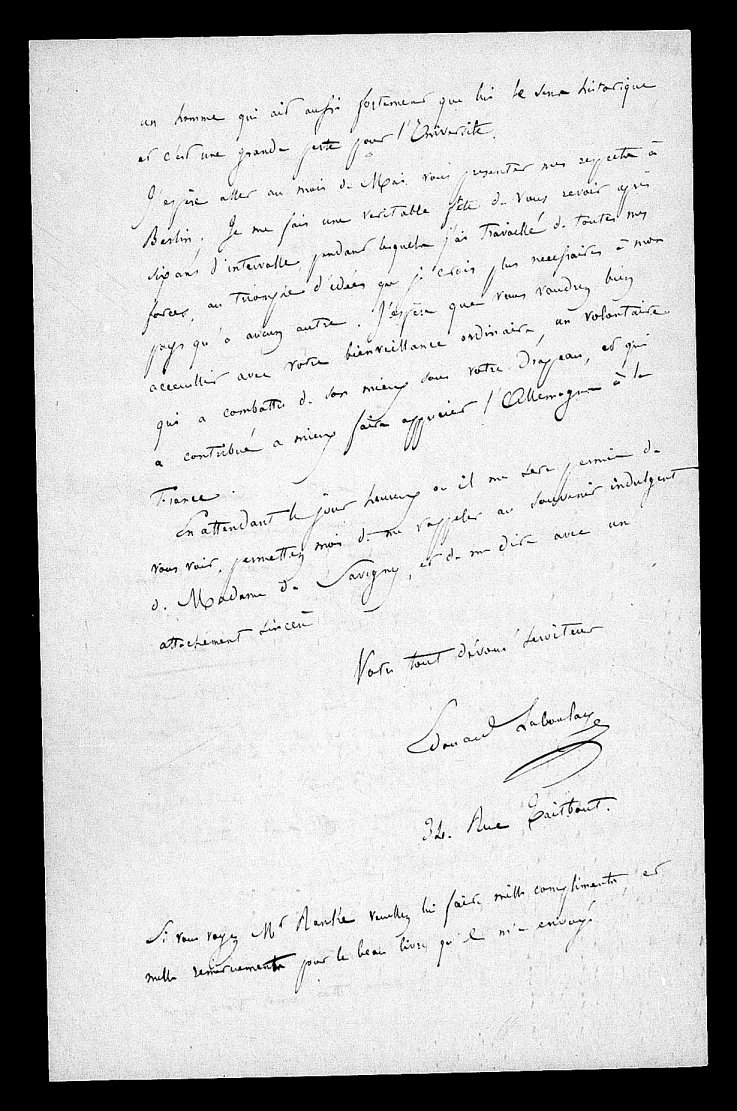 un homme qui ait aussi fortement que lui le sens historique
et c'est une grande perte pour l'Université.
J'espère aller au mois de Mai vous presenter mes respects à
Berlin. Je me fais une veritable fête de vous revoir après
six ans d'intervalle, pendant lesquels j'ai travaillé de toutes mes
forces, au triomphe d'idées que je crois plus necessaires à mon
pays qu'à aucun autre. J'espère que vous voudrez bien
accueillir avec votre bienveillance ordinaire, un volontaire
qui a combattu de son mieux sous votre drapeau, et qui
a contribué a mieux faire apprecier l'Allemagne à la
France.
En attendant le jour heureux ou il me sera permis de
vous voir, permettez moi de me rappeler au souvenir indulgent
de Madame de Savigny, et de me dire avec un
attachement sincere
Votre tout dévoué serviteur
Edouard Laboulaye
34. Rue Taitbout.
Si vous voyez Mr Ranke veuillez lui faire mille compliments, et
mille remerciements pour le beau livre qu'il m'a envoyé